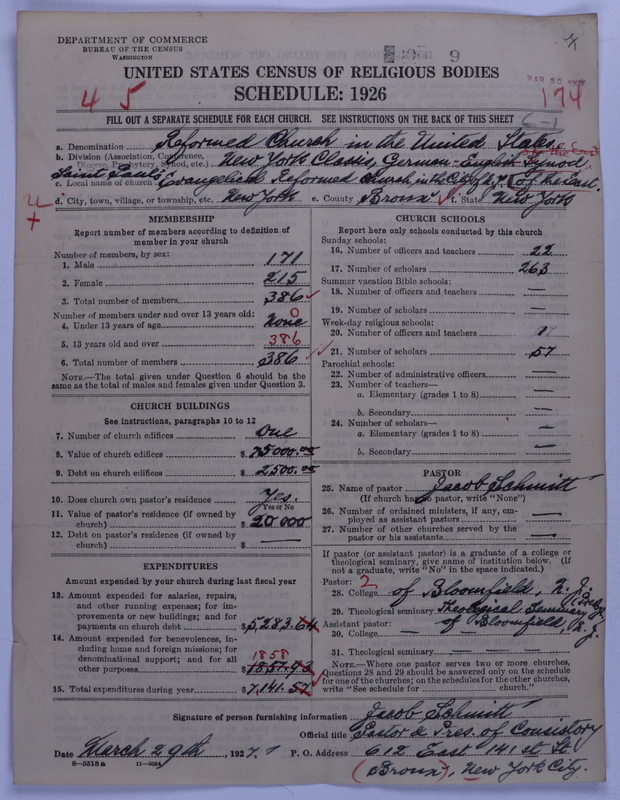 DEPARTMENT OF COMMERCE
BUREAU OF THE CENSUS
WASHINGTON
9
MAR 30
UNITED STATES CENSUS OF RELIGIOUS BODIES
SCHEDULE: 1926
4 5
174
FILL OUT A SEPARATE SCHEDULE FOR EACH CHURCH. SEE INSTRUCTIONS ON THE BACK OF THIS SHEET
a. Denomination Reformed Church in the United States
b. Division (Association, Conference, Diocese, Presbytery, Synod, etc.) New York Classis, German-English Synod of the East
c. Local name of church Saint Pauls Evangelical Reformed Church in the City of N.Y. of the East.
d. City, town, village, or township, etc. New York e. County Bronx f. State New York
MEMBERSHIP
Report number of members according to definition of member in your church
Number of members, by sex:
1. Male 171
2. Female 215
3. Total number of members, 386
Number of members under and over 13 years old:
4. Under 13 years of age None 0
5. 13 years old and over 386
6. Total number of members 386
NOTE.—The total given under Question 6 should be the same as the total of males and females given under Question 3.
CHURCH BUILDINGS
See instructions, paragraphs 10 to 12
7. Number of church edifices One
8. Value of church edifices $ 75000.00
9. Debt on church edifices $ 2500.00
10. Does church own pastor's residence Yes.
Yes or No
11. Value of pastor's residence (if owned by church) $ 20000
12. Debt on pastor's residence (if owned by church) $ —
EXPENDITURES
Amount expended by your church during last fiscal year
13. Amount expended for salaries, repairs, and other running expenses; for improvements or new buildings; and for payments on church debt $ 5283.64
14. Amount expended for benevolences, including home and foreign missions; for denominational support; and for all other purposes 1858 $ 1857.93
15. Total expenditures during year $ 7,141.57
CHURCH SCHOOLS
Report here only schools conducted by this church
Sunday schools:
16. Number of officers and teachers 22
17. Number of scholars 263
Summer vacation Bible schools:
18. Number of officers and teachers —
19. Number of scholars —
Week-day religious schools:
20. Number of officers and teachers 1
21. Number of scholars 57
Parochial schools:
22. Number of administrative officers —
23. Number of teachers—
a. Elementary (grades 1 to 8) —
b. Secondary —
24. Number of scholars—
a. Elementary (grades 1 to 8) —
b. Secondary —
PASTOR
25. Name of pastor Jacob Schmitt
(If church has no pastor, write "None")
26. Number of ordained ministers, if any, employed as assistant pastors —
27. Number of other churches served by the pastor or his assistants —
If pastor (or assistant pastor) is a graduate of a college or theological seminary, give name of institution below. (If not a graduate, write "No" in the space indicated.)
Pastor: 2
28. College of Bloomfield, N. J.
29. Theological seminary Theological Seminary (Presby.
Assistant pastor: of Bloomfield, N. J.
30. College — —
31. Theological seminary — —
NOTE.—Where one pastor serves two or more churches, Questions 28 and 29 should be answered only on the schedule for one of the churches; on the schedules for the other churches, write "See schedule for church."
Signature of person furnishing information Jacob Schmitt
Official title Pastor & Pres. of Consistory
Date March 29th, 1927. P. O. Address 612 East 141st St
8—5518a 11—9064
(Bronx), New York City.